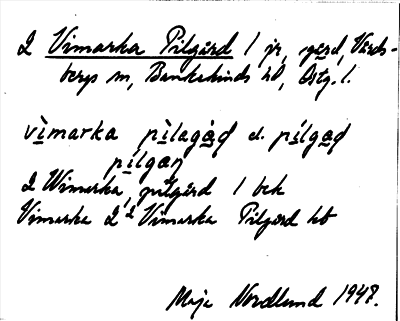 2 Vimarka Pilgård 1 jr, gård, Vårds-
bergs sn, Bankekinds hd, Östg. l.
vìmarka pìlagạ̊ḍ el. pílgạḍ
pílgæṇ
2 Wimarka, pilgård 1 bek
Vimarka 2² Vimarka Pilgård kb
Maja Nordlund 1947.